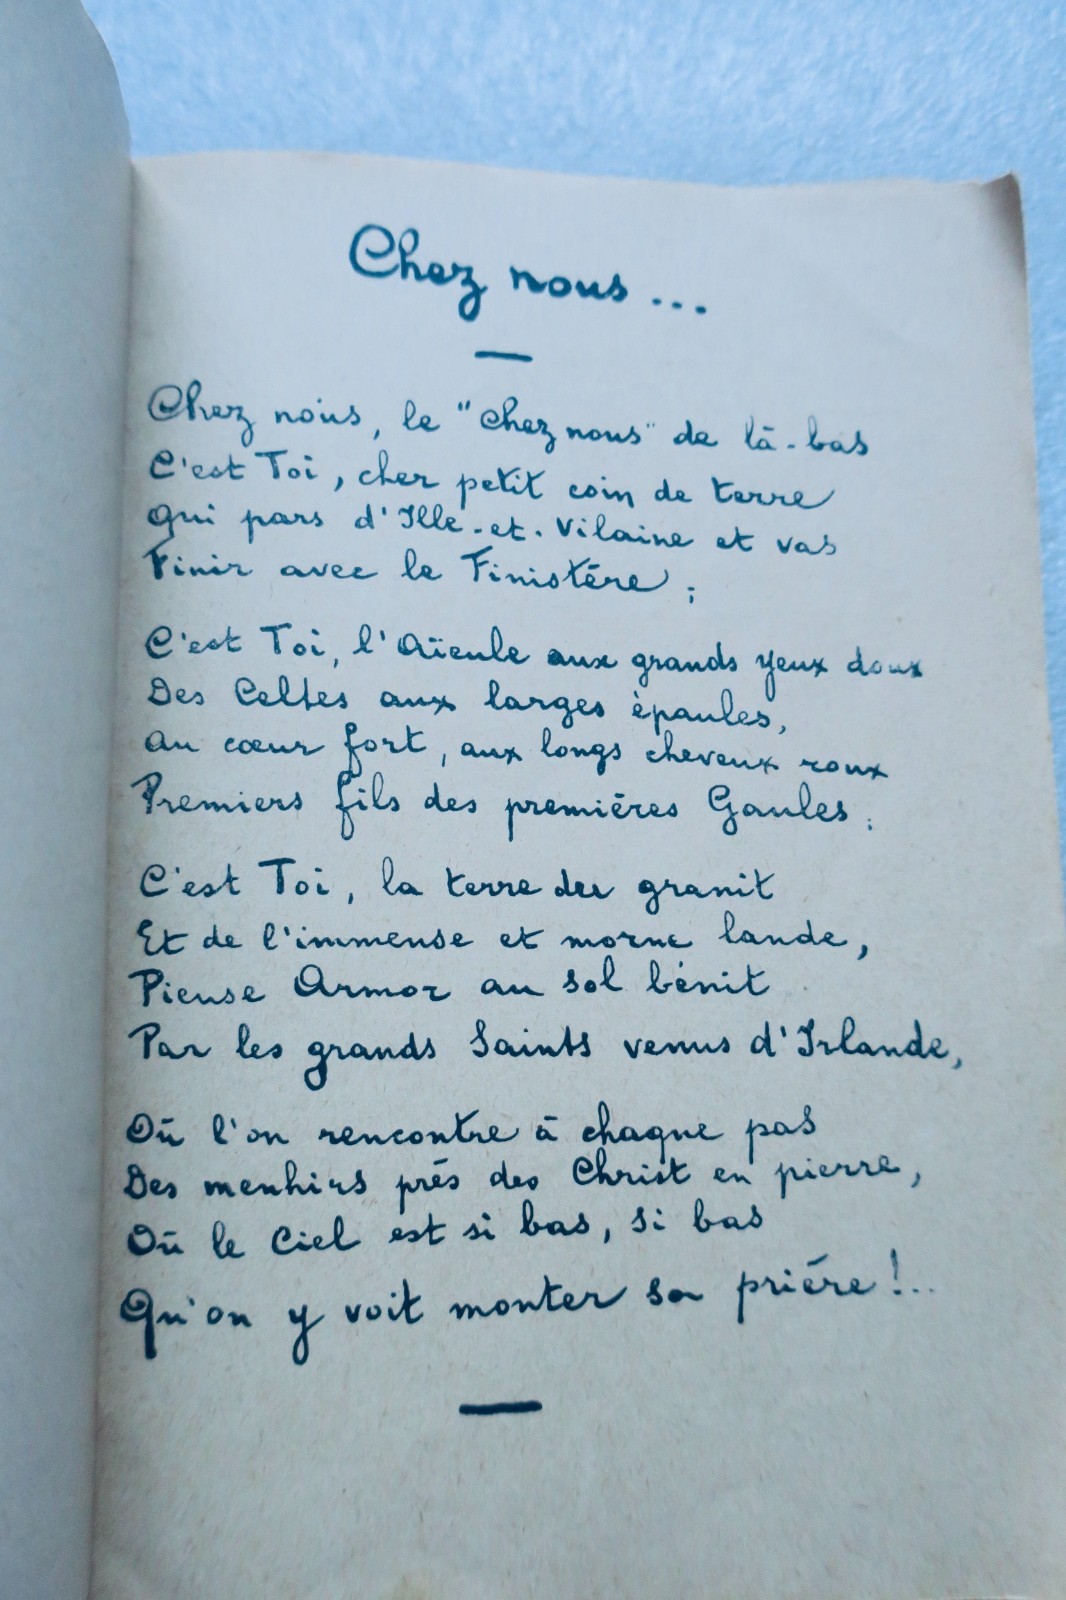 Chez nous...
Chez nous, le "Chez nous" de là-bas
C'est Toi, cher petit coin de terre
Qui pars d'Ille-et-Vilaine et vas
Finir avec le Finistère ;
C'est Toi, l'Aïeule aux grands yeux doux
Des Celtes aux larges épaules,
Au cœur fort, aux longs cheveux roux
Premiers fils des premières Gaules ;
C'est Toi, la terre du granit
Et de l'immense et morne lande,
Pieuse Armor au sol bénit
Par les grands Saints venus d'Irlande,
Où l'on rencontre à chaque pas
Des menhirs près des Christ en pierre,
Où le Ciel est si bas, si bas
Qu'on y voit monter sa prière !..